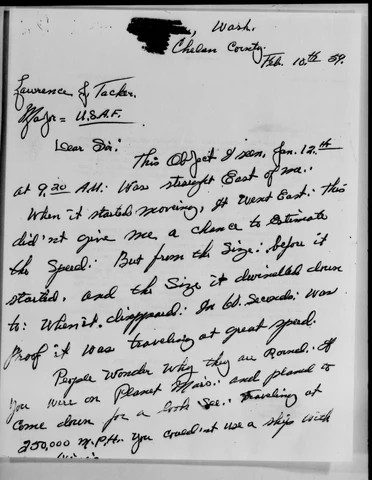 , Wash.
Chelan County.
Feb. 10th 59.
Lawrence J. Tacker.
Major = U.S.A.F.
Dear Sir:
This Object I seen, Jan. 12.th
at 9.30 A.M: Was straight East of me.
When it started moving, It Went East: this
did'nt give me a chance to Estimate
the Speed: But from the Size: before it
started, and the Size it dwindled down
to: When it disappeard: In 60. Seconds: Was
Proof it was traveling at great speed.
People Wonder Why they are Round. If
you were on Planet Mars: and planed to
come down for a look See: traveling at
250,000 M.P.H. You could not use a ship with